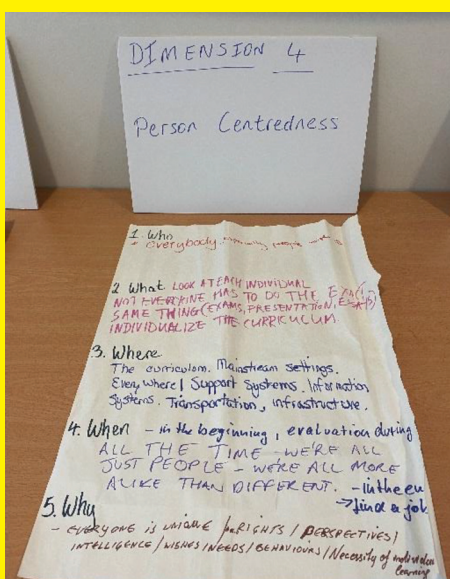 DIMENSION 4
Person Centredness
1. Who
• everybody
2 What LOOK AT EACH INDIVIDUAL
NOT EVERYONE HAS TO DO THE
SAME THING (EXAMS, PRESENTATION,
INDIVIDUALIZE THE CURRICULUM
3. Where
The curriculum. Mainstream settings.
Everywhere | Support systems. Information
systems. Transportation, infrastructure.
4. When - in the beginning, evaluation during
ALL THE TIME - WE'RE ALL
JUST PEOPLE - WE'RE ALL MORE
ALIKE THAN DIFFERENT. - in the en
→ find a job
5. Why
- EVERYONE IS UNIQUE / RIGHTS / PERSPECTIVES /
INTELLIGENCE / WISHES / NEEDS / BEHAVIOURS / Necessity of
learning